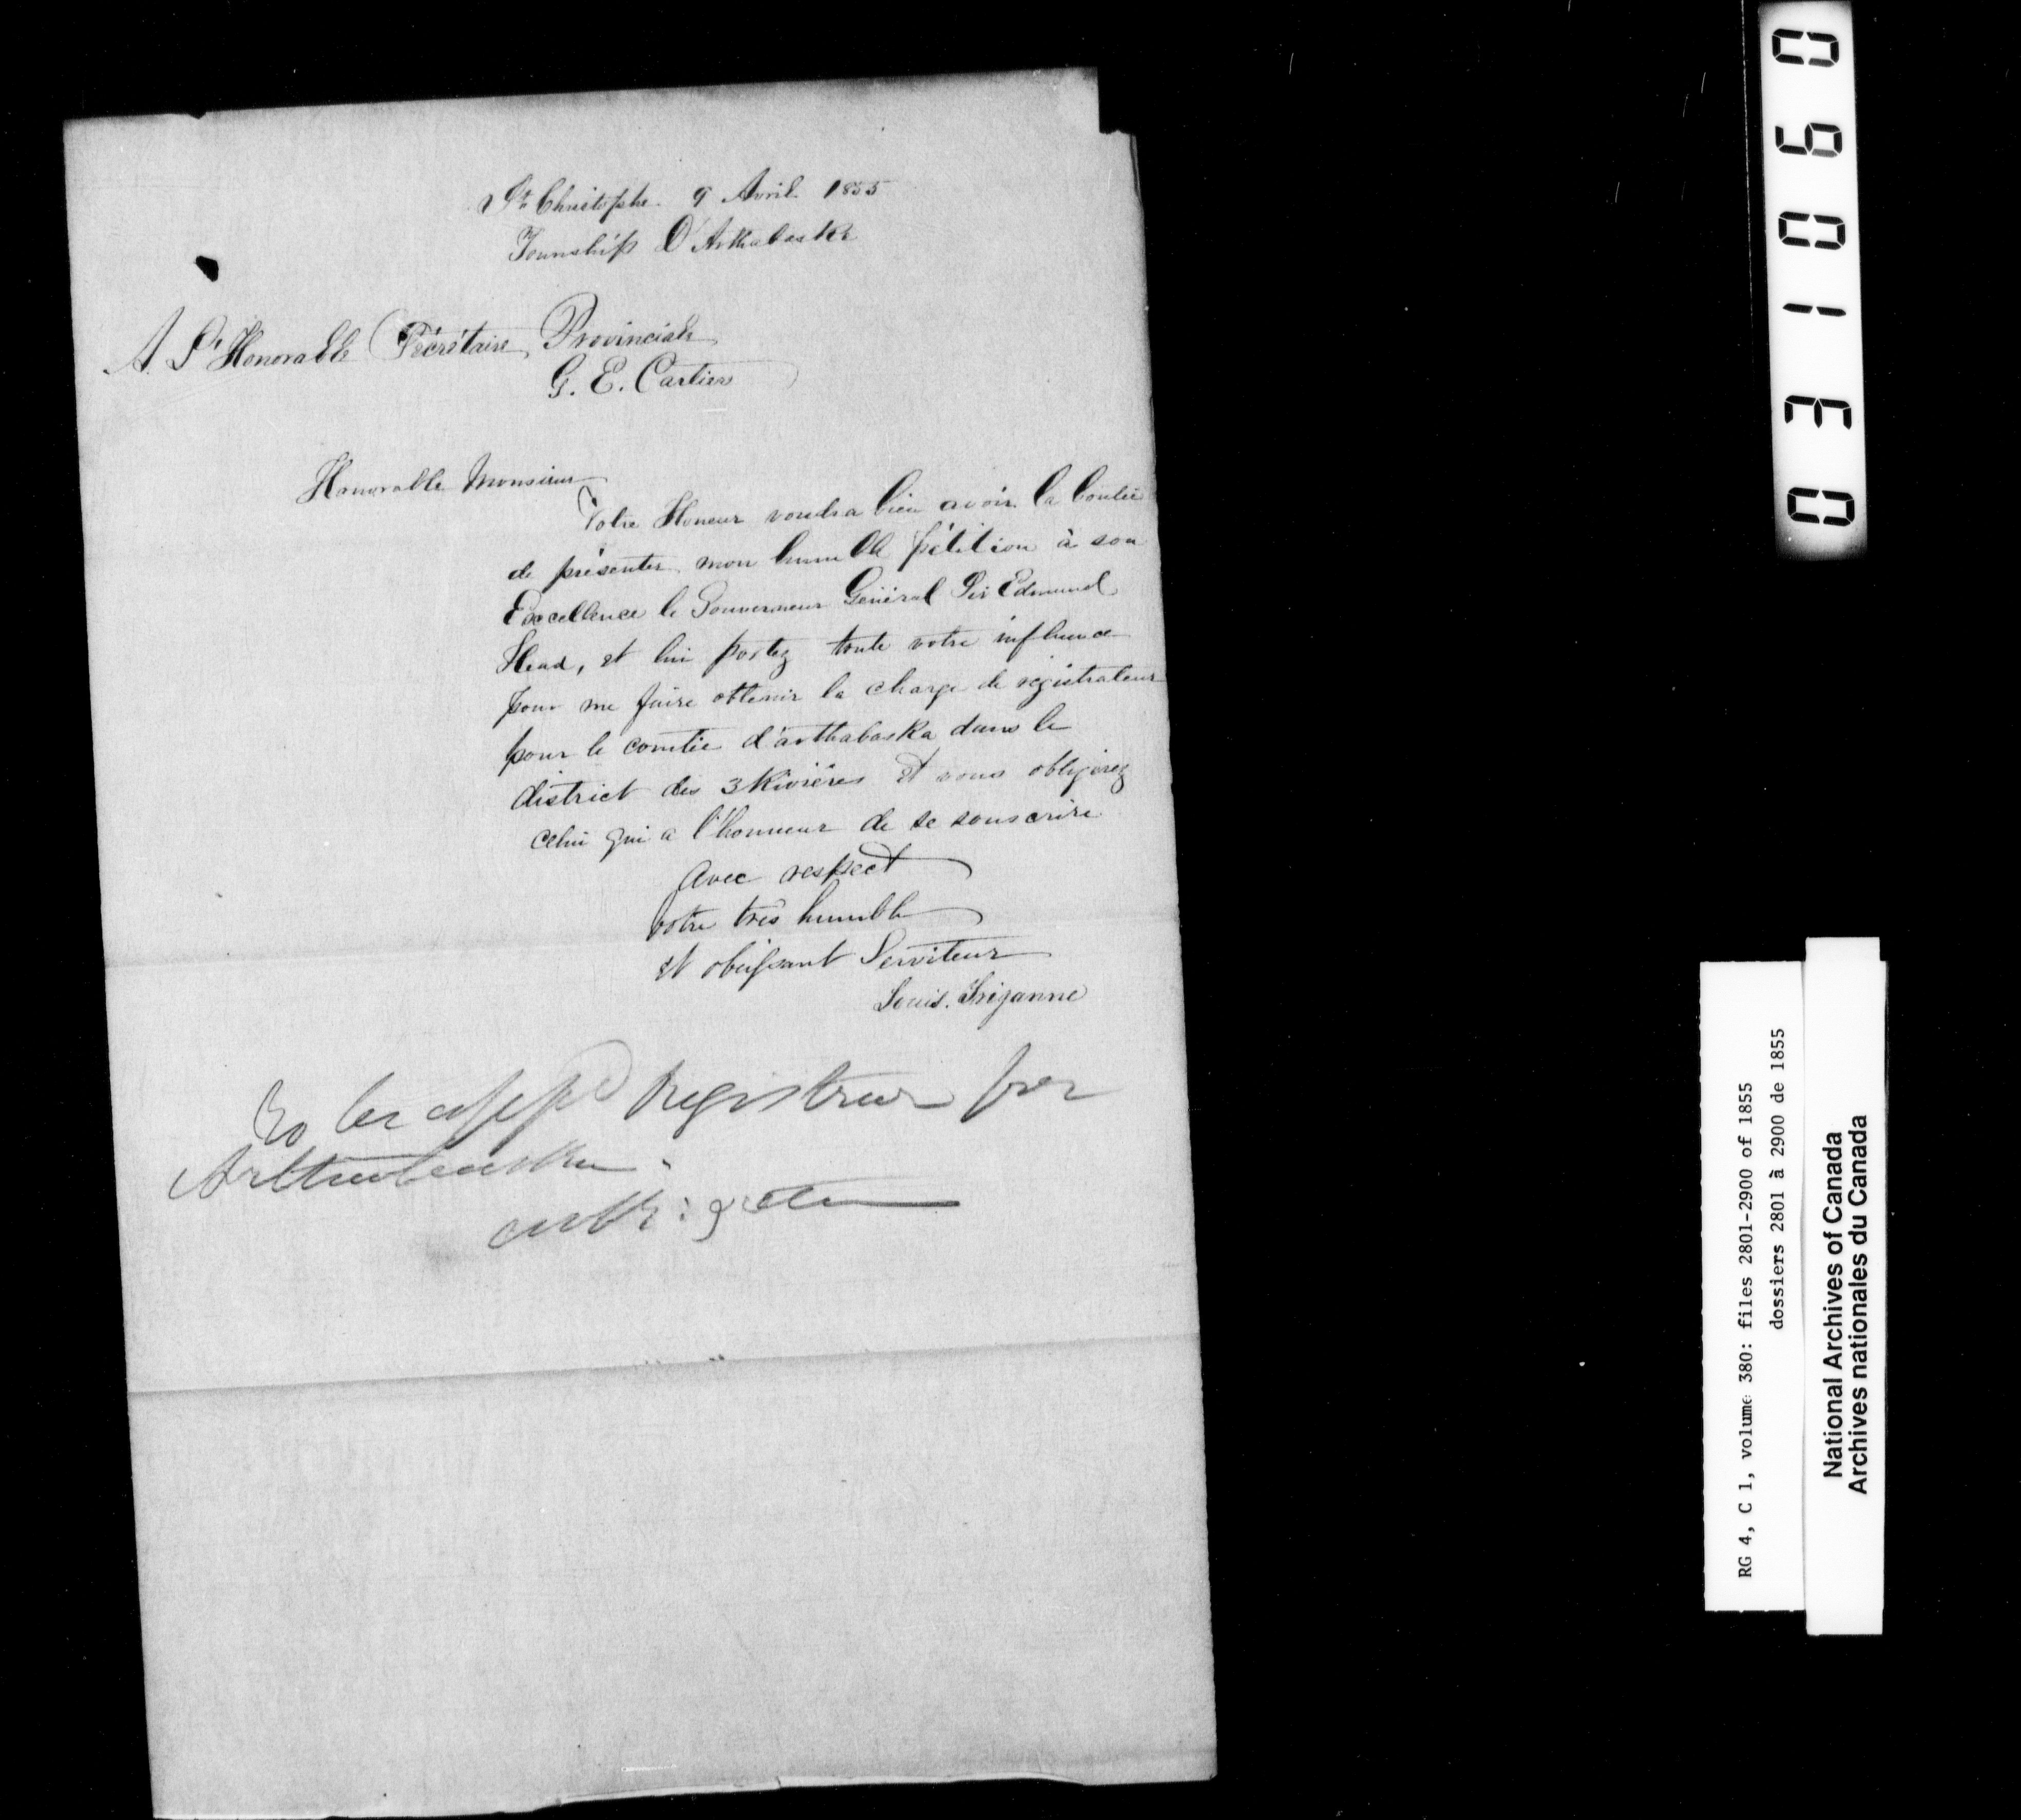 St Christophe 9 Avril 1855
Township D'Arthabaska
A L'Honorable Sécrétaire Provinciale
G. E. Cartier
Honorable Monsieur
Votre Honeur voudra bien avoir la bontée
de présenter mon humble pétition à son
Excellence le Gouverneur Général Sir Edmund
Head, et lui portez toute votre influence
pour me faire obtenir la charge de régistrateur
pour le comtée d'arthabaska dans le
district des 3 Rivières et vous obligerez
celui qui a l'honneur de se souscrire
Avec respect
votre très humble
et obeissant Serviteur
Louis
To be app^d Registrar for
Arthabaska
031060
RG 4, C 1, volume 380: files 2801-2900 of 1855
dossiers 2801 à 2900 de 1855
National Archives of Canada
Archives nationales du Canada